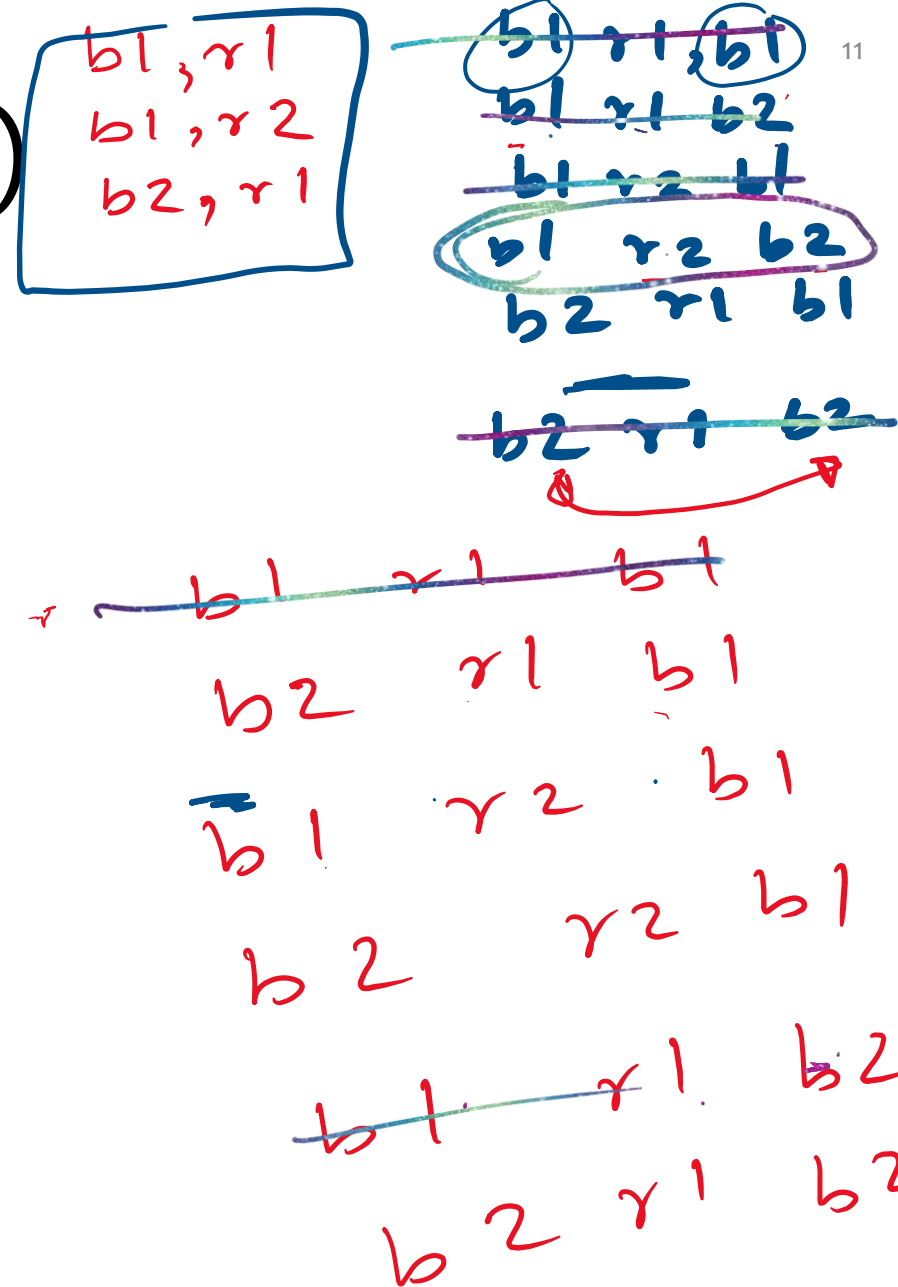 b1, r1
b1, r2
b2, r1
b1 r1, b1
11
b1 r1 b2
b1 r2 b1
b1 r2 b2
b2 r1 b1
b2 r1 b2
b1 r1 b1
b2 r1 b1
b1 r2 b1
b2 r2 b1
b1 r1 b2
b2 r1 b2